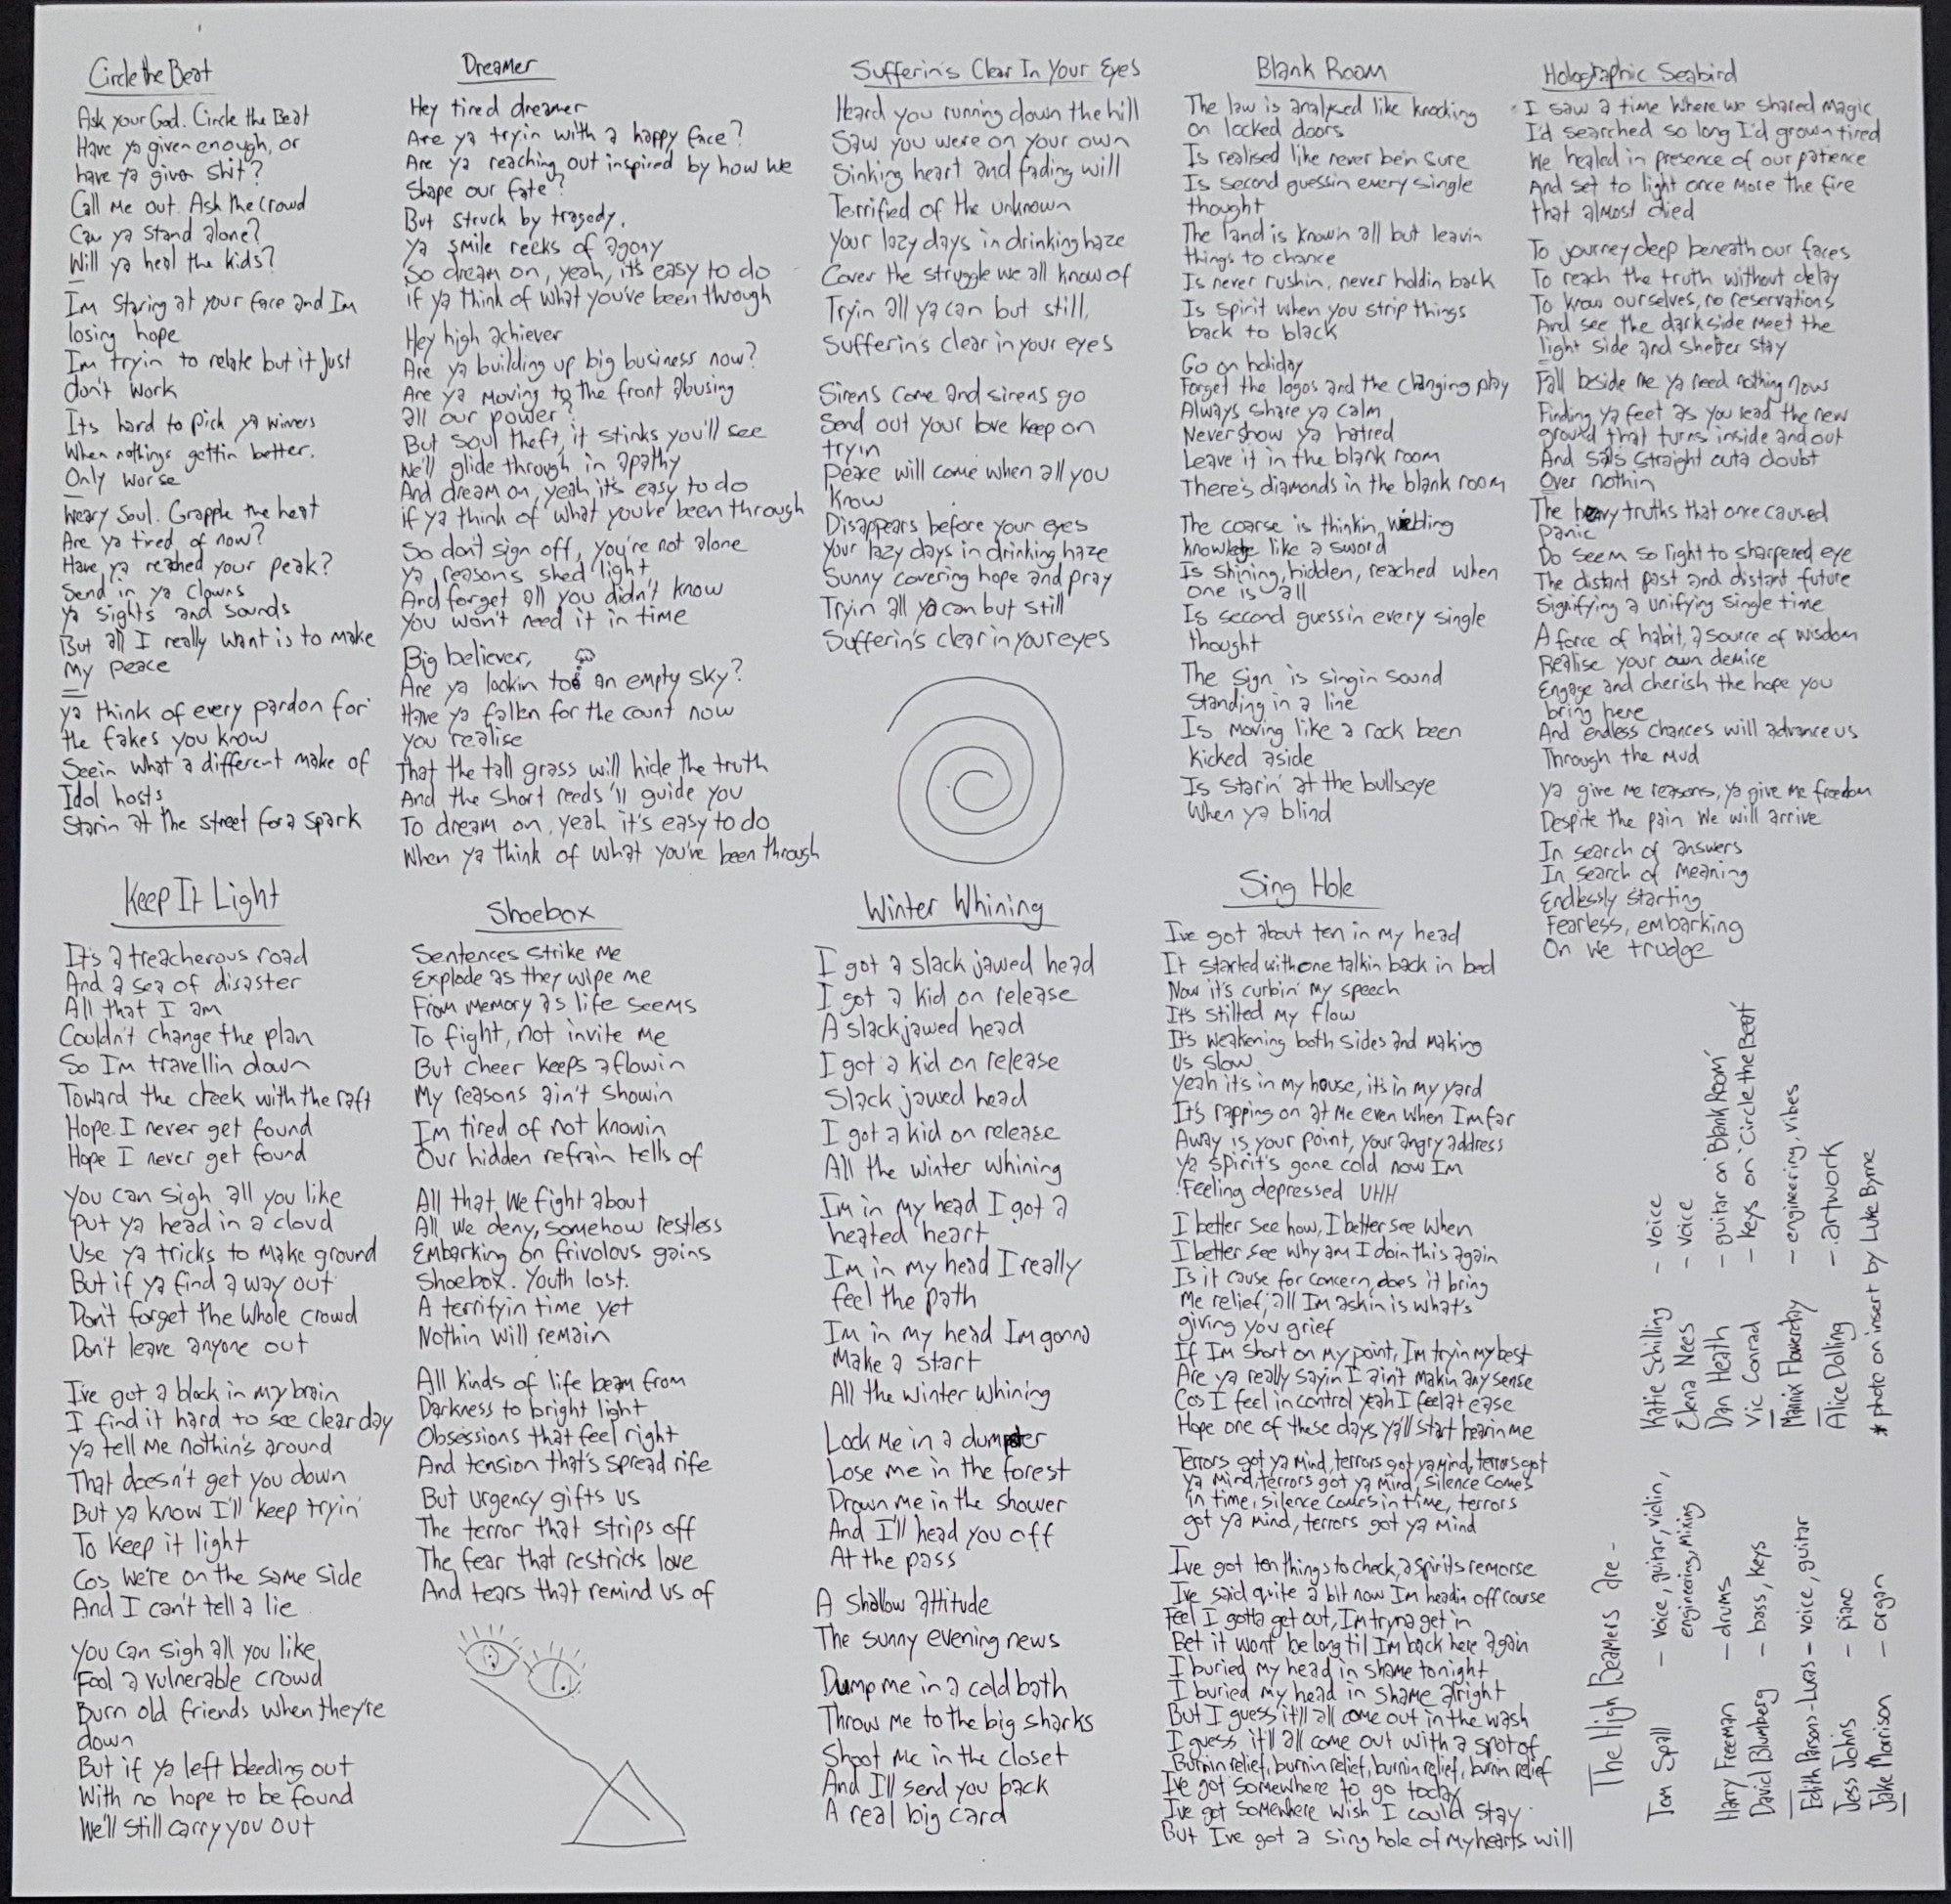 Circle the Beat
Ask your God. Circle the Beat
Have ya given enough, or
have ya given shit?
Call me out. Ask the crowd
Can ya stand alone?
Will ya heal the kids?
Im staring at your face and Im
losing hope
Im tryin to relate but it just
don't work
Its hard to pick ya winners
When nothings gettin better.
Only worse
Weary Soul. Grapple the heat
Are ya tired of now?
Have ya reached your peak?
Send in ya clowns
Ya sights and sounds
But all I really want is to make
my peace
Ya think of every pardon for
the fakes you know
Seein what a different make of
Idol hosts
Starin at the street for a spark
Dreamer
Hey tired dreamer
Are ya tryin with a happy face?
Are ya reaching out inspired by how we
Shape our fate?
But struck by tragedy,
Ya smile reeks of agony
So dream on, yeah, it's easy to do
if ya think of what you've been through
Hey high achiever
Are ya building up big business now?
Are ya moving to the front abusing
all our power?
But soul theft, it stinks you'll see
We'll glide through in apathy
And dream on, yeah it's easy to do
if ya think of what you've been through
So don't sign off, you're not alone
Ya reasons shed light
And forget all you didn't know
You won't need it in time
Big believer,
Are ya lookin to an empty sky?
Have ya fallen for the count now
You realise
That the tall grass will hide the truth
And the short reeds'll guide you
To dream on, yeah it's easy to do
When ya think of what you've been through
Sufferin's Clear In Your Eyes
Heard you running down the hill
Saw you were on your own
Sinking heart and fading will
Terrified of the unknown
Your lazy days in drinking haze
Cover the struggle we all know of
Tryin all ya can but still,
Sufferin's clear in your eyes
Sirens come and sirens go
Send out your love keep on
tryin
Peace will come when all you
know
Disappears before your eyes
Your lazy days in drinking haze
Sunny covering hope and pray
Tryin all ya can but still
Sufferin's clear in your eyes
Blank Room
The law is analysed like knocking
on locked doors
Is realised like never bein sure
Is second guessin every single
thought
The land is knowin all but leavin
things to chance
Is never rushin, never holdin back
Is spirit when you strip things
back to black
Go on holiday
Forget the logos and the changing play
Always share ya calm
Never show ya hatred
Leave it in the blank room
There's diamonds in the blank room
The coarse is thinkin, wielding
knowledge like a sword
Is shining, hidden, reached when
one is all
Is second guessin every single
thought
The sign is singin sound
Standing in a line
Is moving like a rock been
kicked aside
Is starin' at the bullseye
When ya blind
Holographic Seabird
I saw a time where we shared magic
I'd searched so long I'd grown tired
We healed in presence of our patience
And set to light once more the fire
that almost died
To journey deep beneath our faces
To reach the truth without delay
To know ourselves, no reservations
And see the dark side meet the
light side and shelter stay
Fall beside me ya need nothing now
Finding ya feet as you lead the new
ground that turns inside and out
And sails straight outa doubt
Over nothin
The heavy truths that once caused
panic
Do seem so light to sharpened eye
The distant past and distant future
Signifying a unifying single time
A force of habit, a source of wisdom
Realise your own demise
Engage and cherish the hope you
bring here
And endless chances will advance us
Through the mud
Ya give me reasons, ya give me freedom
Despite the pain we will arrive
In search of answers
In search of meaning
Endlessly starting
Fearless, embarking
On we trudge
Keep It Light
It's a treacherous road
And a sea of disaster
All that I am
Couldn't change the plan
So I'm travellin down
Toward the creek with the raft
Hope I never get found
Hope I never get found
You can sigh all you like
Put ya head in a cloud
Use ya tricks to make ground
But if ya find a way out
Don't forget the whole crowd
Don't leave anyone out
I've got a block in my brain
I find it hard to see clear day
Ya tell me nothin's around
That doesn't get you down
But ya know I'll keep tryin'
To keep it light
Cos we're on the same side
And I can't tell a lie
You can sigh all you like
Fool a vulnerable crowd
Burn old friends when they're
down
But if ya left bleeding out
With no hope to be found
We'll still carry you out
Shoebox
Sentences strike me
Explode as they wipe me
From memory as life seems
To fight, not invite me
But cheer keeps aflowin
My reasons ain't showin
I'm tired of not knowin
Our hidden refrain tells of
All that we fight about
All we deny, somehow restless
Embarking on frivolous gains
Shoebox. Youth lost.
A terrifyin time yet
Nothin will remain
All kinds of life beam from
Darkness to bright light
Obsessions that feel right
And tension that's spread rife
But urgency gifts us
The terror that strips off
The fear that restricts love
And tears that remind us of
Winter Whining
I got a slack jawed head
I got a kid on release
A slack jawed head
I got a kid on release
Slack jawed head
I got a kid on release
All the winter whining
Im in my head I got a
heated heart
Im in my head I really
feel the path
Im in my head Im gonna
make a start
All the winter whining
Lock me in a dumpster
Lose me in the forest
Drown me in the shower
And I'll head you off
At the pass
A shallow attitude
The sunny evening news
Dump me in a cold bath
Throw me to the big sharks
Shoot me in the closet
And I'll send you back
A real big card
Sing Hole
Ive got about ten in my head
It started with one talkin back in bed
Now it's curbin' my speech
It's stilted my flow
It's weakening both sides and making
us slow
Yeah its in my house, its in my yard
It's rapping on at me even when Im far
Away is your point, your angry address
Ya spirit's gone cold now Im
Feeling depressed UHH
I better see how, I better see when
I better see why am I doin this again
Is it cause for concern, does it bring
me relief, all Im askin is what's
giving you grief
If Im short on my point, Im tryin my best
Are ya really sayin I ain't makin any sense
Cos I feel in control yeah I feel at ease
Hope one of these days ya'll start hearin me
Terrors got ya mind, terrors got ya mind, terrors got
ya mind, terrors got ya mind, silence comes
in time, silence comes in time, terrors
got ya mind, terrors got ya mind
Ive got ten things to check, a spirits remorse
Ive said quite a bit now Im headin off course
Feel I gotta get out, Im tryna get in
Bet it wont be long til Im back here again
I buried my head in shame tonight
I buried my head in shame alright
But I guess it'll all come out in the wash
I guess it'll all come out with a spot of
Burnin relief, burnin relief, burnin relief, burnin relief
Ive got somewhere to go today
Ive got somewhere wish I could stay
But Ive got a sing hole of my hearts will
The High Beamers are -
Tom Spall - voice, guitar, violin,
engineering, mixing
Harry Freeman - drums
David Blumberg - bass, keys
Edith Parsons-Lucas - voice, guitar
Jess Johns - piano
Jake Morrison - organ
Katie Schilling - voice
Elena Nees - voice
Dan Heath - guitar on 'Blank Room'
Vic Conrad - keys on 'Circle the Beat'
Mannix Flowerday - engineering, vibes
Alice Dolling - artwork
* photo on insert by Luke Byrne